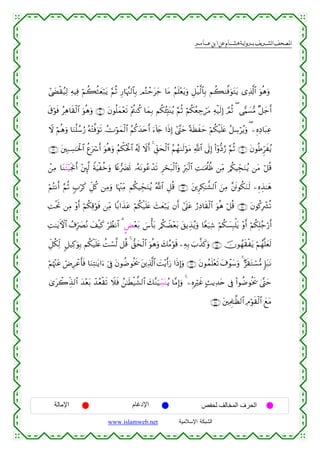 المصحف الشريف برواية هشام عن ابن عامر
وَهُوَ ٱلَّذِى يَتَوَفَّىٰكُم بِٱلَّيْلِ وَيَعْلَمُ مَا جَرَحْتُم بِٱلنَّهَارِ ثُمَّ يَبْعَثُكُمْ فِيهِ لِيُقْضَىٰٓ
أَجَلٌ مُّسَمًّى ۖ ثُمَّ إِلَيْهِ مَرْجِعُكُمْ ثُمَّ يُنَبِّئُكُم بِمَا كُنتُمْ تَعْمَلُونَ ۝ وَهُوَ ٱلْقَاهِرُ فَوْقَ
عِبَادِهِۦ ۖ وَيُرْسِلُ عَلَيْكُمْ حَفَظَةً حَتَّىٰٓ إِذَا جَآءَ أَحَدَكُمُ ٱلْمَوْتُ تَوَفَّتْهُ رُسُلُنَا وَهُمْ لَا
يُفَرِّطُونَ ۝ ثُمَّ رُدُّوٓا۟ إِلَى ٱللَّهِ مَوْلَىٰهُمُ ٱلْحَقِّ ۚ أَلَا لَهُ ٱلْحُكْمُ وَهُوَ أَسْرَعُ ٱلْحَٰسِبِينَ ۝
قُلْ مَن يُنَجِّيكُم مِّن ظُلُمَٰتِ ٱلْبَرِّ وَٱلْبَحْرِ تَدْعُونَهُۥ تَضَرُّعًا وَخُفْيَةً لَّئِنْ أَنجَيْتَنَا مِنْ
هَٰذِهِۦ لَنَكُونَنَّ مِنَ ٱلشَّٰكِرِينَ ۝ قُلِ ٱللَّهُ يُنَجِّيكُم مِّنْهَا وَمِن كُلِّ كَرْبٍ ثُمَّ أَنتُمْ
تُشْرِكُونَ ۝ قُلْ هُوَ ٱلْقَادِرُ عَلَىٰٓ أَن يَبْعَثَ عَلَيْكُمْ عَذَابًا مِّن فَوْقِكُمْ أَوْ مِن تَحْتِ
أَرْجُلِكُمْ أَوْ يَلْبِسَكُمْ شِيَعًا وَيُذِيقَ بَعْضَكُم بَأْسَ بَعْضٍ ۗ ٱنظُرْ كَيْفَ نُصَرِّفُ ٱلْءَايَٰتِ
لَعَلَّهُمْ يَفْقَهُونَ ۝ وَكَذَّبَ بِهِۦ قَوْمُكَ وَهُوَ ٱلْحَقُّ ۚ قُل لَّسْتُ عَلَيْكُم بِوَكِيلٍ ۝ لِّكُلِّ
نَبَإٍ مُّسْتَقَرٌّ ۚ وَسَوْفَ تَعْلَمُونَ ۝ وَإِذَا رَأَيْتَ ٱلَّذِينَ يَخُوضُونَ فِىٓ ءَايَٰتِنَا فَأَعْرِضْ عَنْهُمْ
حَتَّىٰ يَخُوضُوا۟ فِى حَدِيثٍ غَيْرِهِۦ ۚ وَإِمَّا يُنَسِّيَنَّكَ ٱلشَّيْطَٰنُ فَلَا تَقْعُدْ بَعْدَ ٱلذِّكْرَىٰ
مَعَ ٱلْقَوْمِ ٱلظَّٰلِمِينَ ۝
الحرف المخالف لحفص الإدغام الإمالة
الشبكة الإسلامية www.islamweb.net